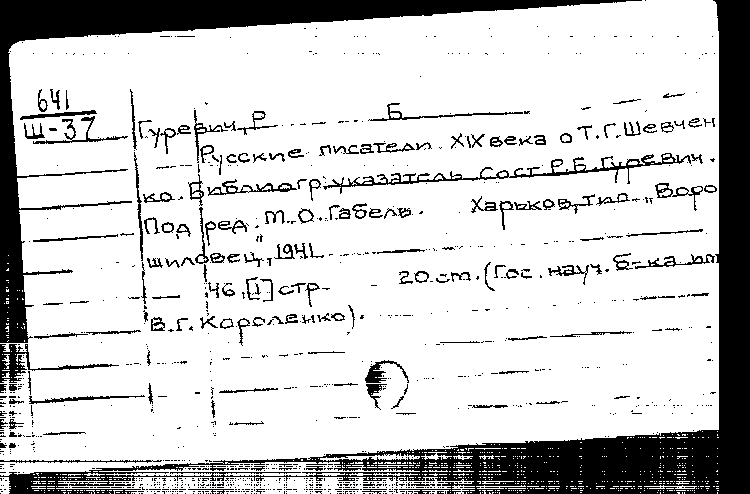 641
Ш-37
Гуревич, Р Б
Русские писатели XIX века о Т.Г.Шевчен
ко. Библиогр. указатель Сост Р.Б.Гуревич.
Под ред. М.О.Габель. Харьков, тип. „Воро
шиловец", 1941
46,[1] стр. 20.ст. (Гос. науч. б-ка им
В.Г. Короленко).